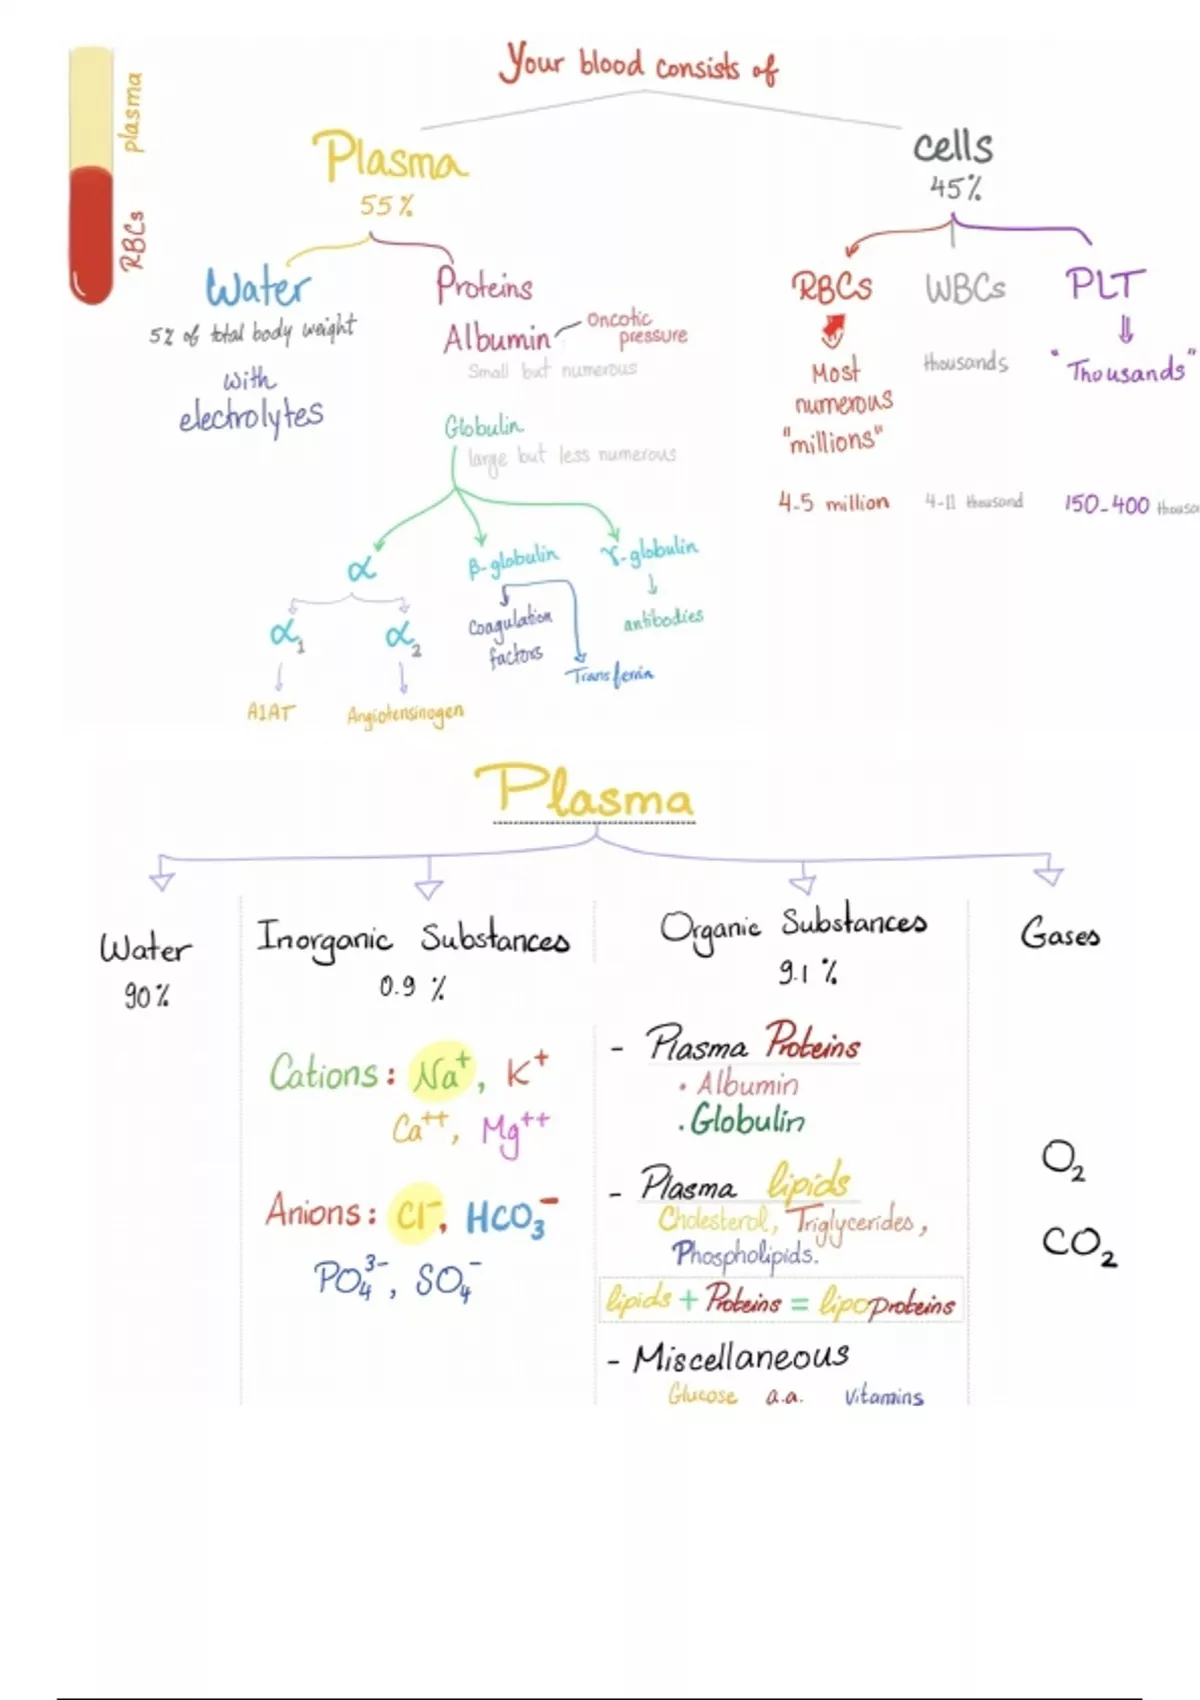 Your blood consists of
plasma
RBCs
Plasma
55%
Water
5% of total body weight
with
electrolytes
Proteins
Albumin
Oncotic
pressure
Small but numerous
Globulin
large but less numerous
α
α1
A1AT
α2
Angiotensinogen
β-globulin
Coagulation
factors
Transferrin
γ-globulin
antibodies
cells
45%
RBCs
Most
numerous
"millions"
4-5 million
WBCs
thousands
4-11 thousand
PLT
"Thousands"
150-400 thousa
Plasma
Water
90%
Inorganic Substances
0.9 %
Cations: Na⁺, K⁺
Ca⁺⁺, Mg⁺⁺
Anions: Cl⁻, HCO₃⁻
PO₄³⁻, SO₄⁻
Organic Substances
9.1 %
- Plasma Proteins
• Albumin
• Globulin
- Plasma lipids
Cholesterol, Triglycerides,
Phospholipids.
lipids + Proteins = lipoproteins
- Miscellaneous
Glucose a.a. Vitamins
Gases
O₂
CO₂